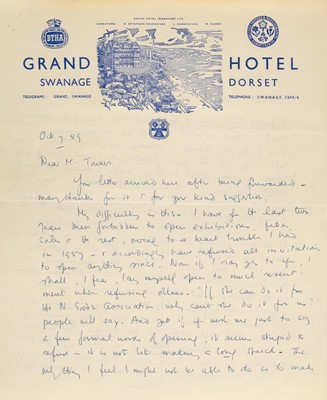 GRAND HOTEL (SWANAGE) LTD.
BTHA
GRAND HOTEL
SWANAGE DORSET
TELEGRAMS: GRAND, SWANAGE TELEPHONE: SWANAGE
Oct 7.
Dear M.
Your letter arrived here after being forwarded -
many thanks for it & for your kind
My difficulty is this - I have for the last two
years been forbidden to open exhibitions,
sales & the rest, owing to a heart trouble I had
in 1957 - & accordingly have refused all invitations
to open anything since. Now if I say yes to you, I
shall, I fear, lay myself open to much resent-
ment when refusing others. "If she can do it for
the Association, why can't she do it for us"
people will say. And yet if you ask me just to say
a few formal words of opening, it seems stupid to
refuse - it is not like making a long speech. The
only thing I feel I might not be able to do is to make